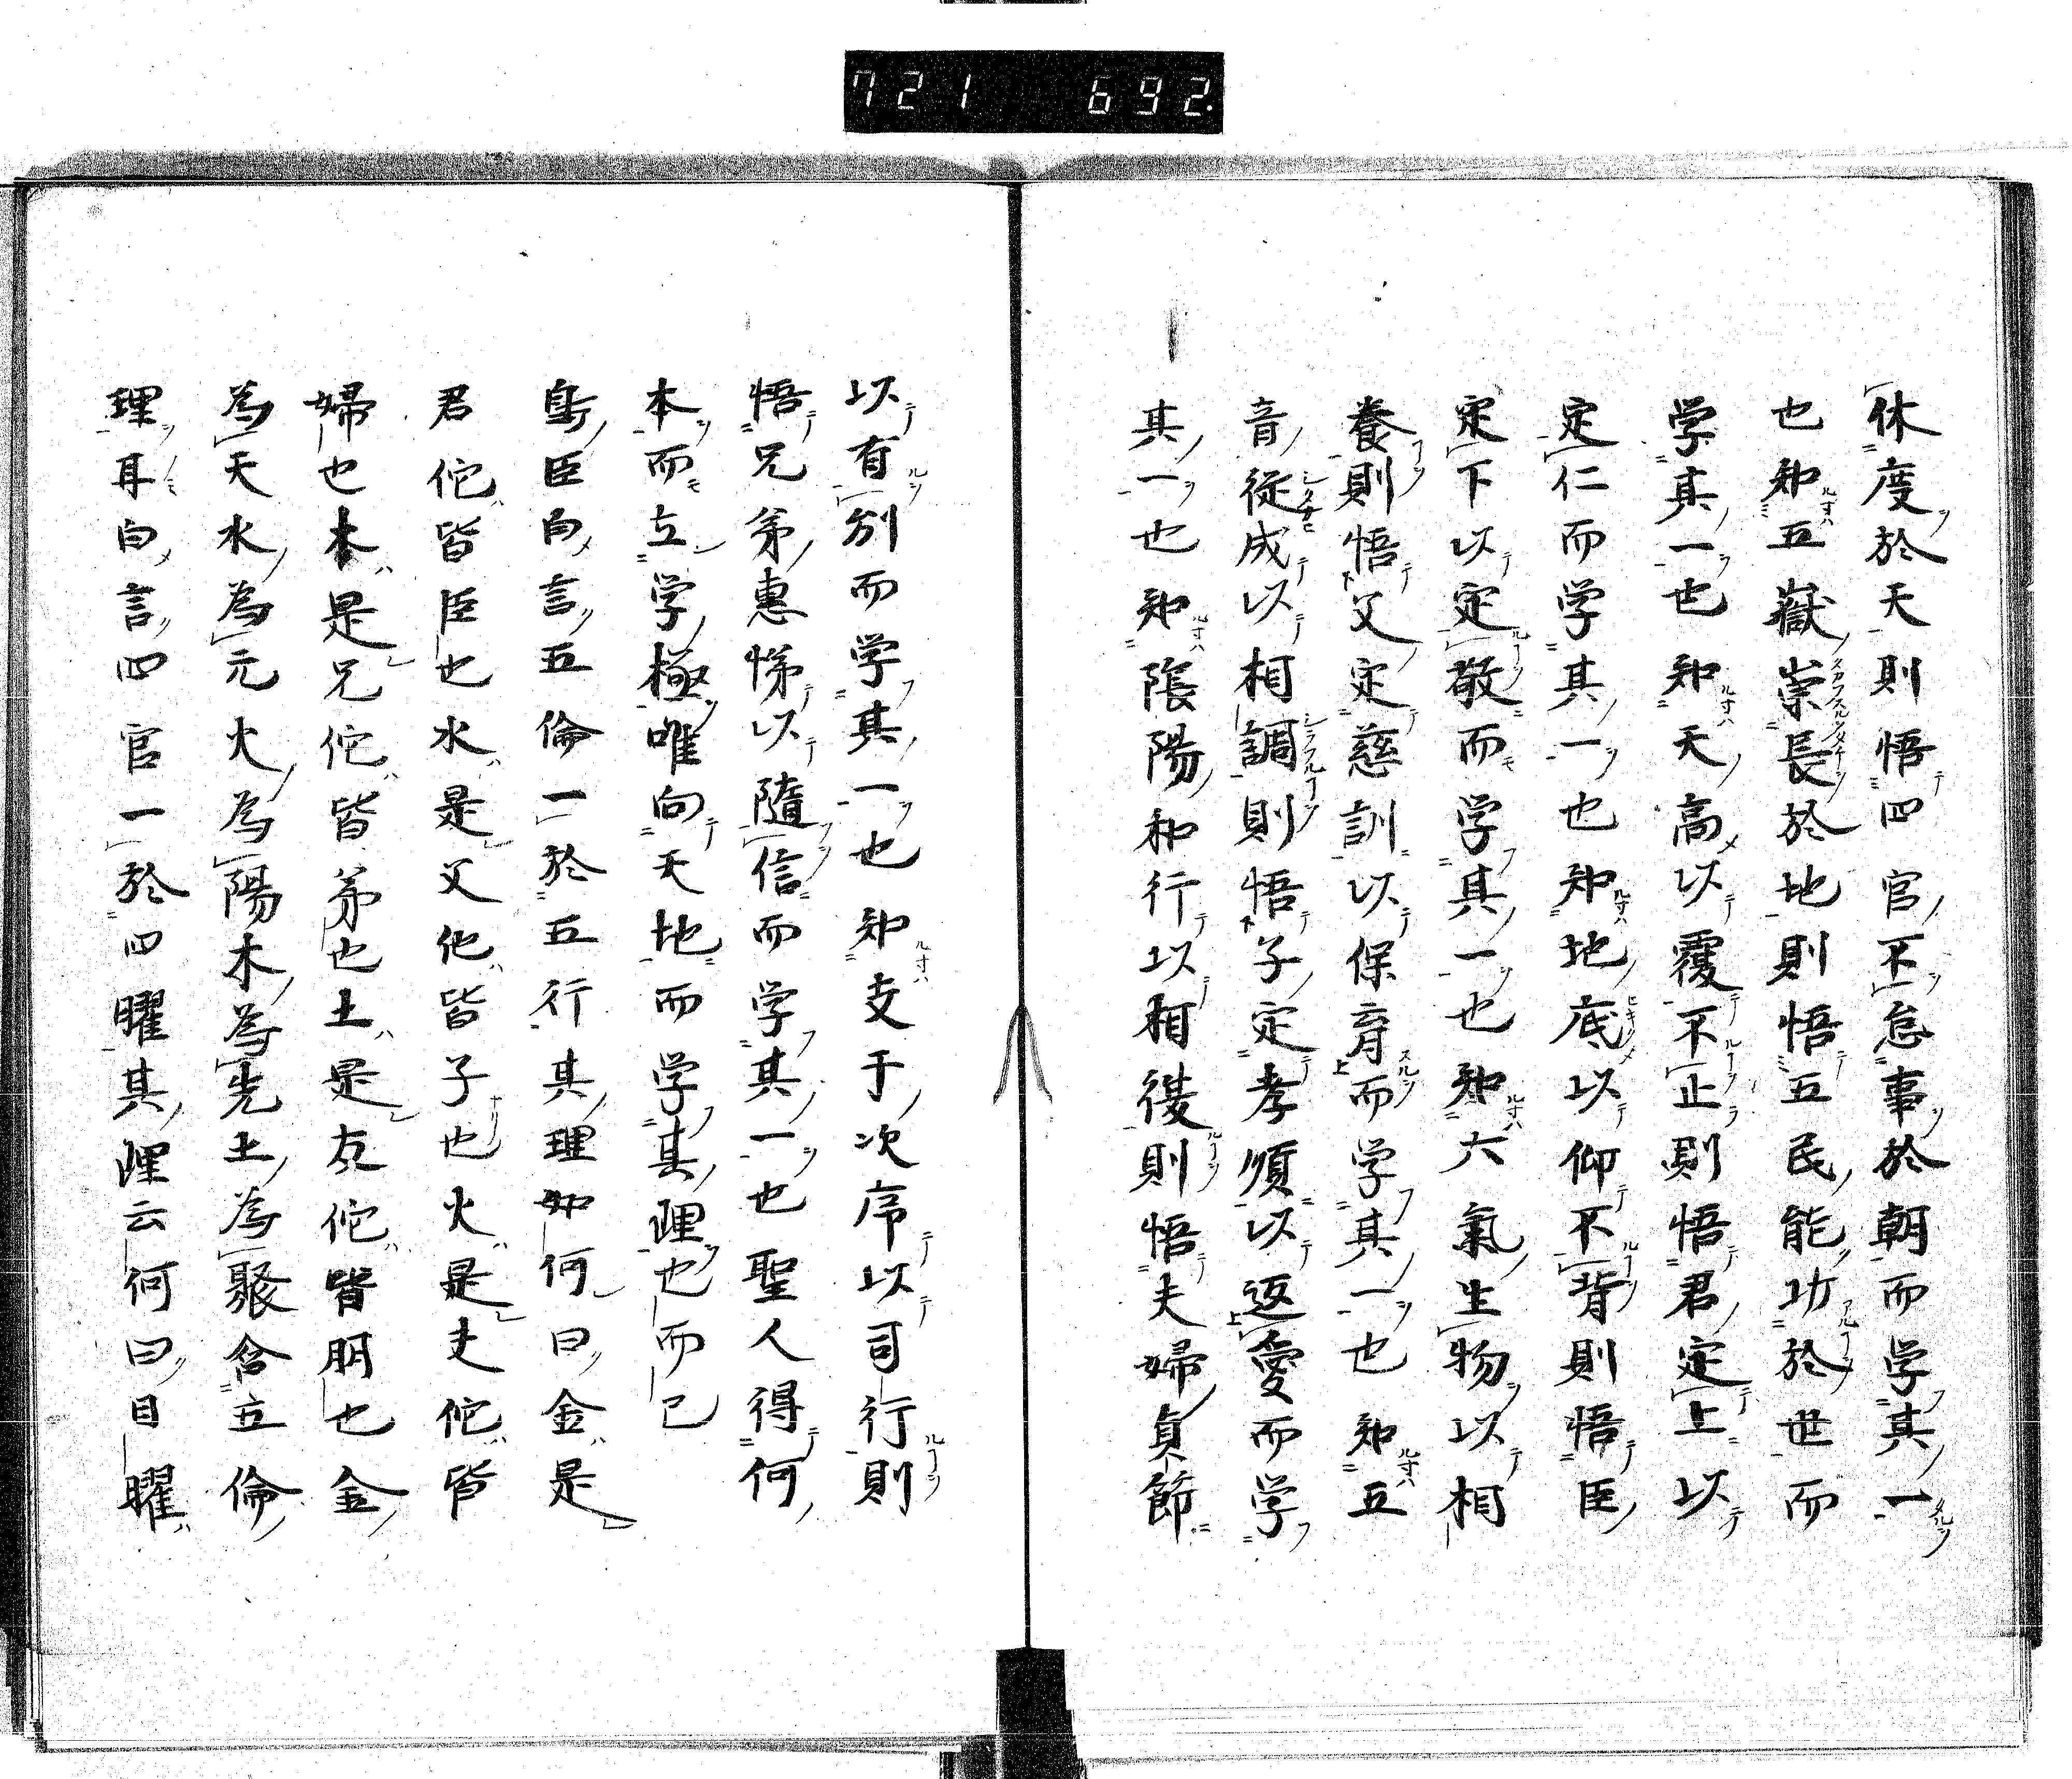 721 692.
休度於天則悟四官不怠事於朝而学其一
也知五嶽崇長於地則悟五民能功於世而
学其一也知天高以覆不止則悟君定上以
定仁而学其一也知地底以仰不背則悟臣
定下以定敬而学其一也知六氣生物以相
養則悟父定慈訓以保育而学其一也知五
音従成以相調則悟子定孝順以返愛而学
其一也知陰陽和行以相後則悟夫婦貞節
以有別而学其一也知支干次序以司行則
悟兄弟惠悌以隨信而学其一也聖人得何
本而立学極唯向天地而学其理也而已
島臣白言五倫一於五行其理如何曰金是
君佗皆臣也水是父他皆子也火是夫佗皆
婦也木是兄佗皆弟也土是友佗皆朋也金
為天水為元火為陽木為先土為聚含立倫
理耳白言四官一於四曜其理云何曰日曜